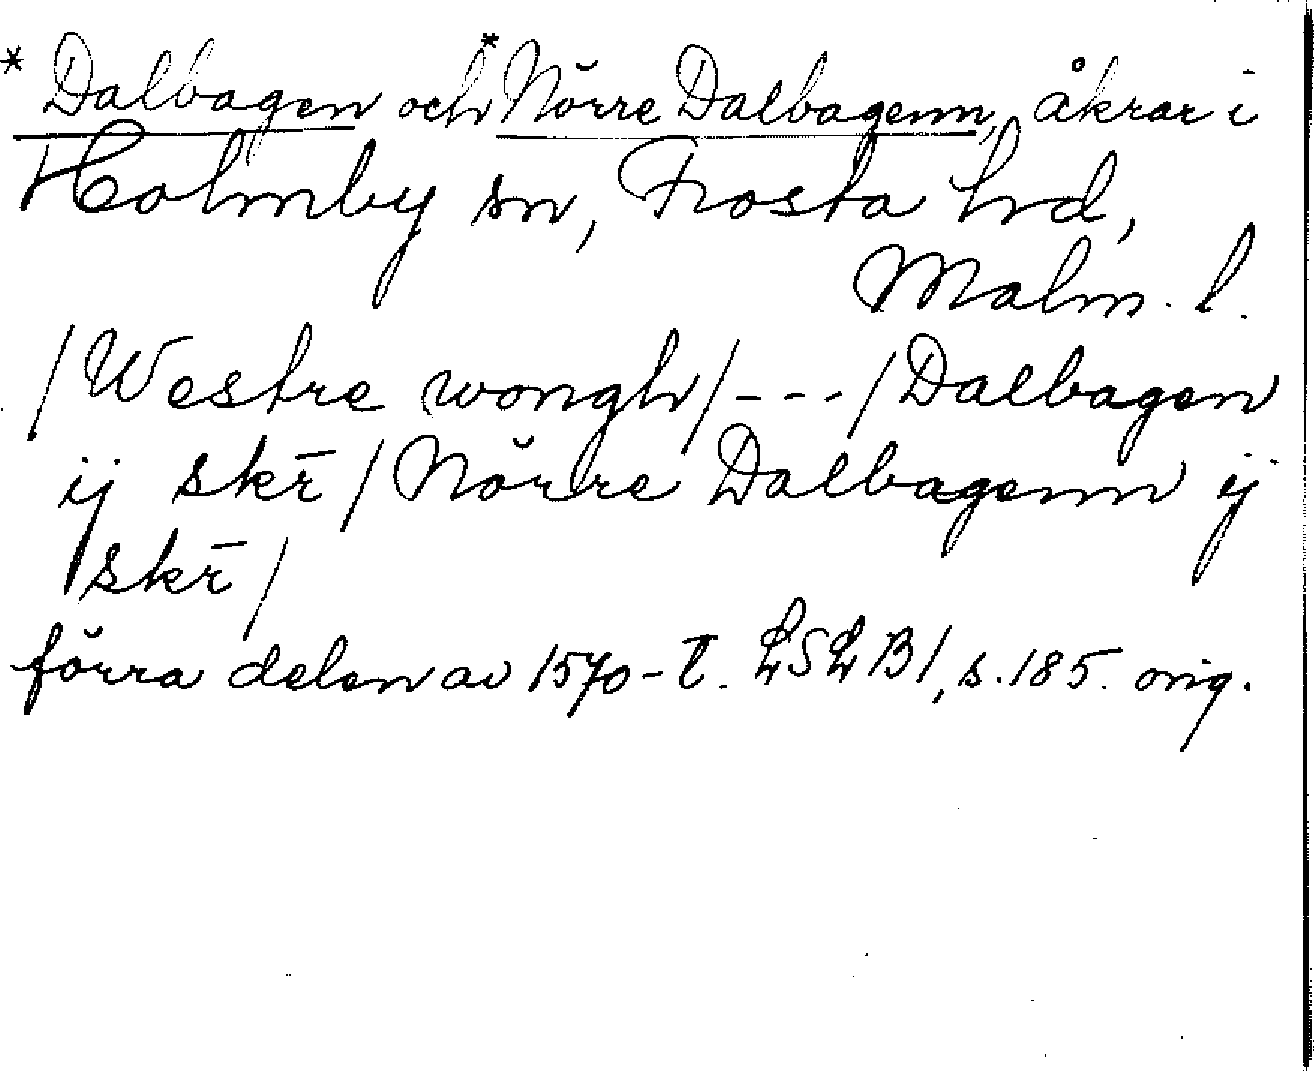 * Dalbagen och *Nörre Dalbagenn, åkrar i
Holmby sn, Frosta hrd,
Malm. l.
/Westre wongh/---/Dalbagen
ij skr̄/Nörre Dalbagenn ij
skr̄/
förra delen av 1570-t. LSLB1, s. 185. orig.